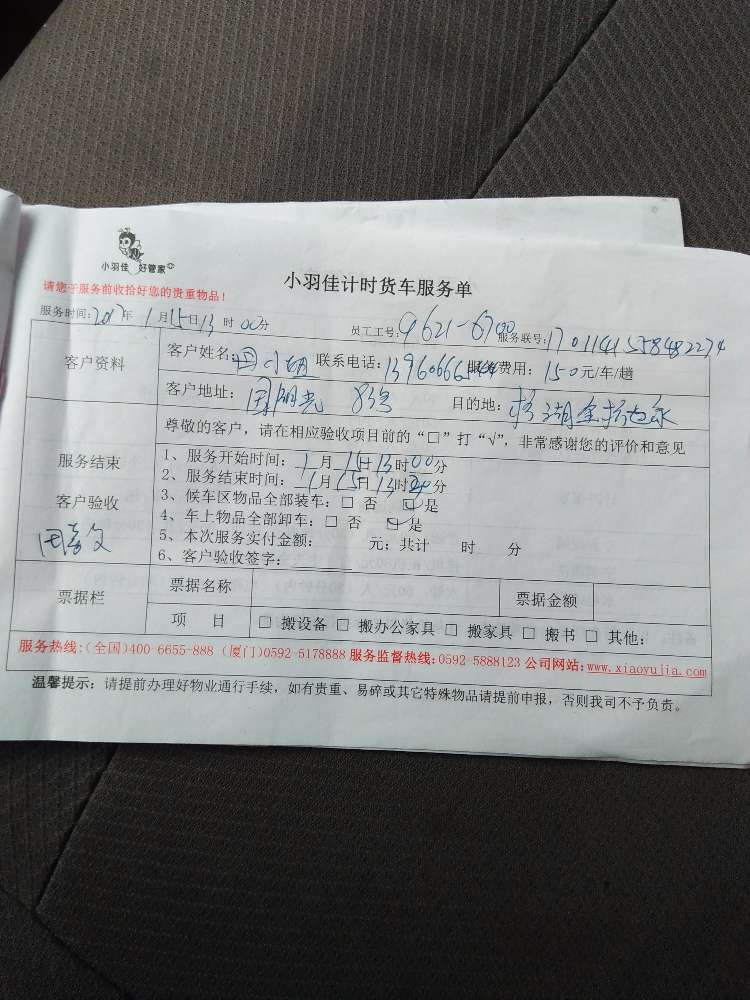 小羽佳 好管家
小羽佳计时货车服务单
请您于服务前收拾好您的贵重物品！
服务时间：2017年 1月15日13时00分 员工工号：9621-6700 服务联号：17011415584822274
客户资料
客户姓名： 联系电话： 服务费用：150元/车/趟
客户地址： 目的地：
尊敬的客户，请在相应验收项目前的“□”打“√”，非常感谢您的评价和意见
服务结束
客户验收
1、服务开始时间：1月15日13时00分
2、服务结束时间：1月15日13时分
3、候车区物品全部装车：□ 否 ☑是
4、车上物品全部卸车：□ 否 ☑是
5、本次服务实付金额： 元；共计 时 分
6、客户验收签字：
票据栏
票据名称 票据金额
项 目 □ 搬设备 □ 搬办公家具 □ 搬家具 □ 搬书 □ 其他：
服务热线：(全国)400 6655-888 (厦门)0592-5178888 服务监督热线：0592-5888123 公司网站：www.xiaoyujia.com
温馨提示：请提前办理好物业通行手续，如有贵重、易碎或其它特殊物品请提前申报，否则我司不予负责。